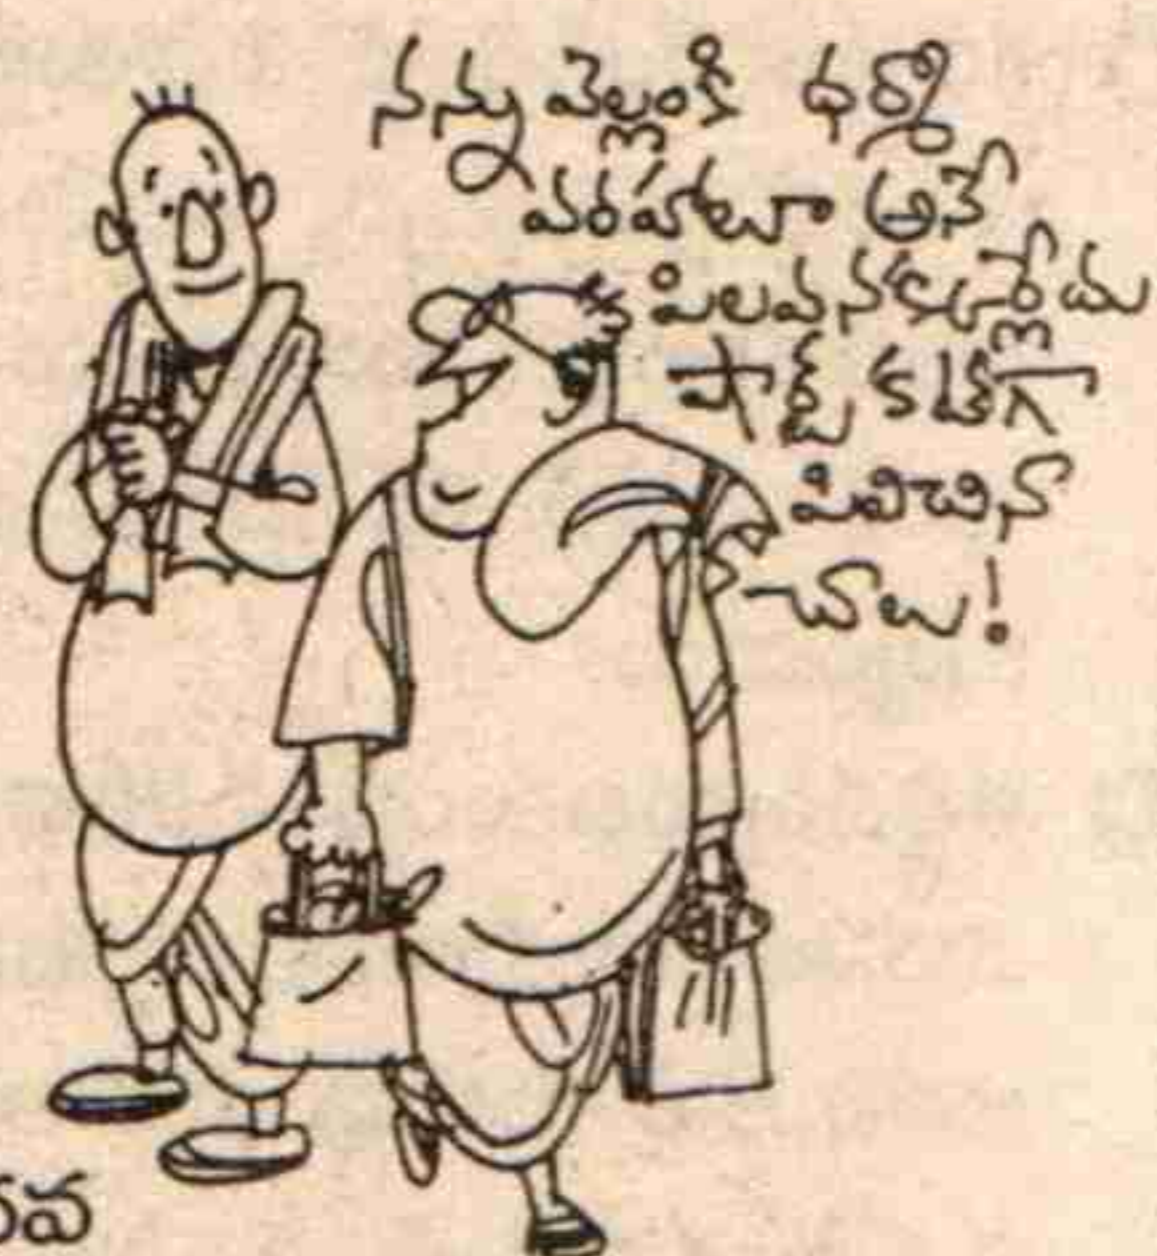 నన్ను వెల్లంకి ధర్మా
వరహాలూ అనే
పిలవనక్కర్లేదు
షార్ట్ కట్‌గా
పివిచిన
చాలు!